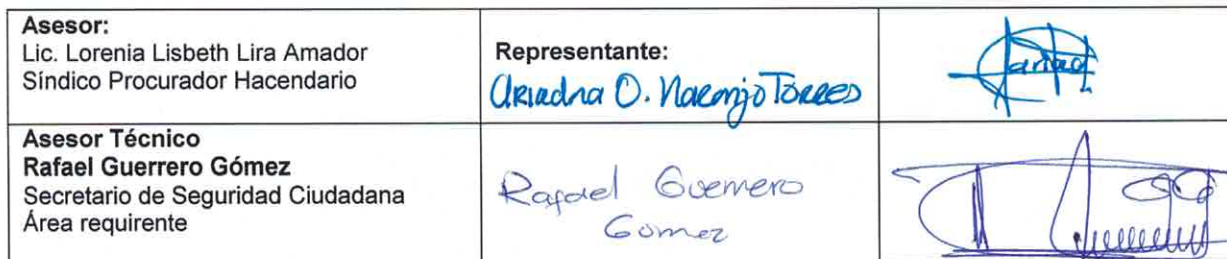 Asesor:
Lic. Lorenia Lisbeth Lira Amador
Síndico Procurador Hacendario
Representante:
Ariadna O. Naranjo Torres
Asesor Técnico
Rafael Guerrero Gómez
Secretario de Seguridad Ciudadana
Área requirente
Rafael Guerrero
Gomez